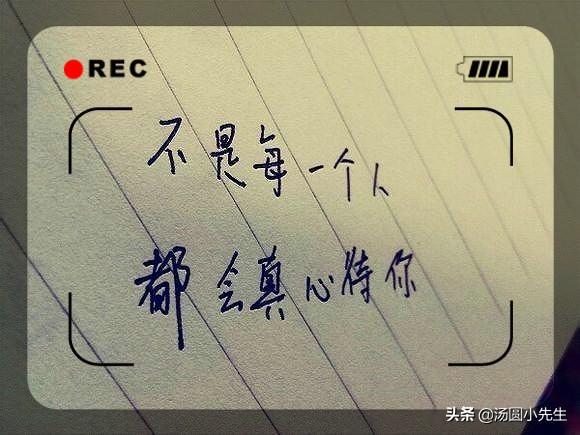 REC
不是每一个人
都会真心待你
头条 @汤圆小先生